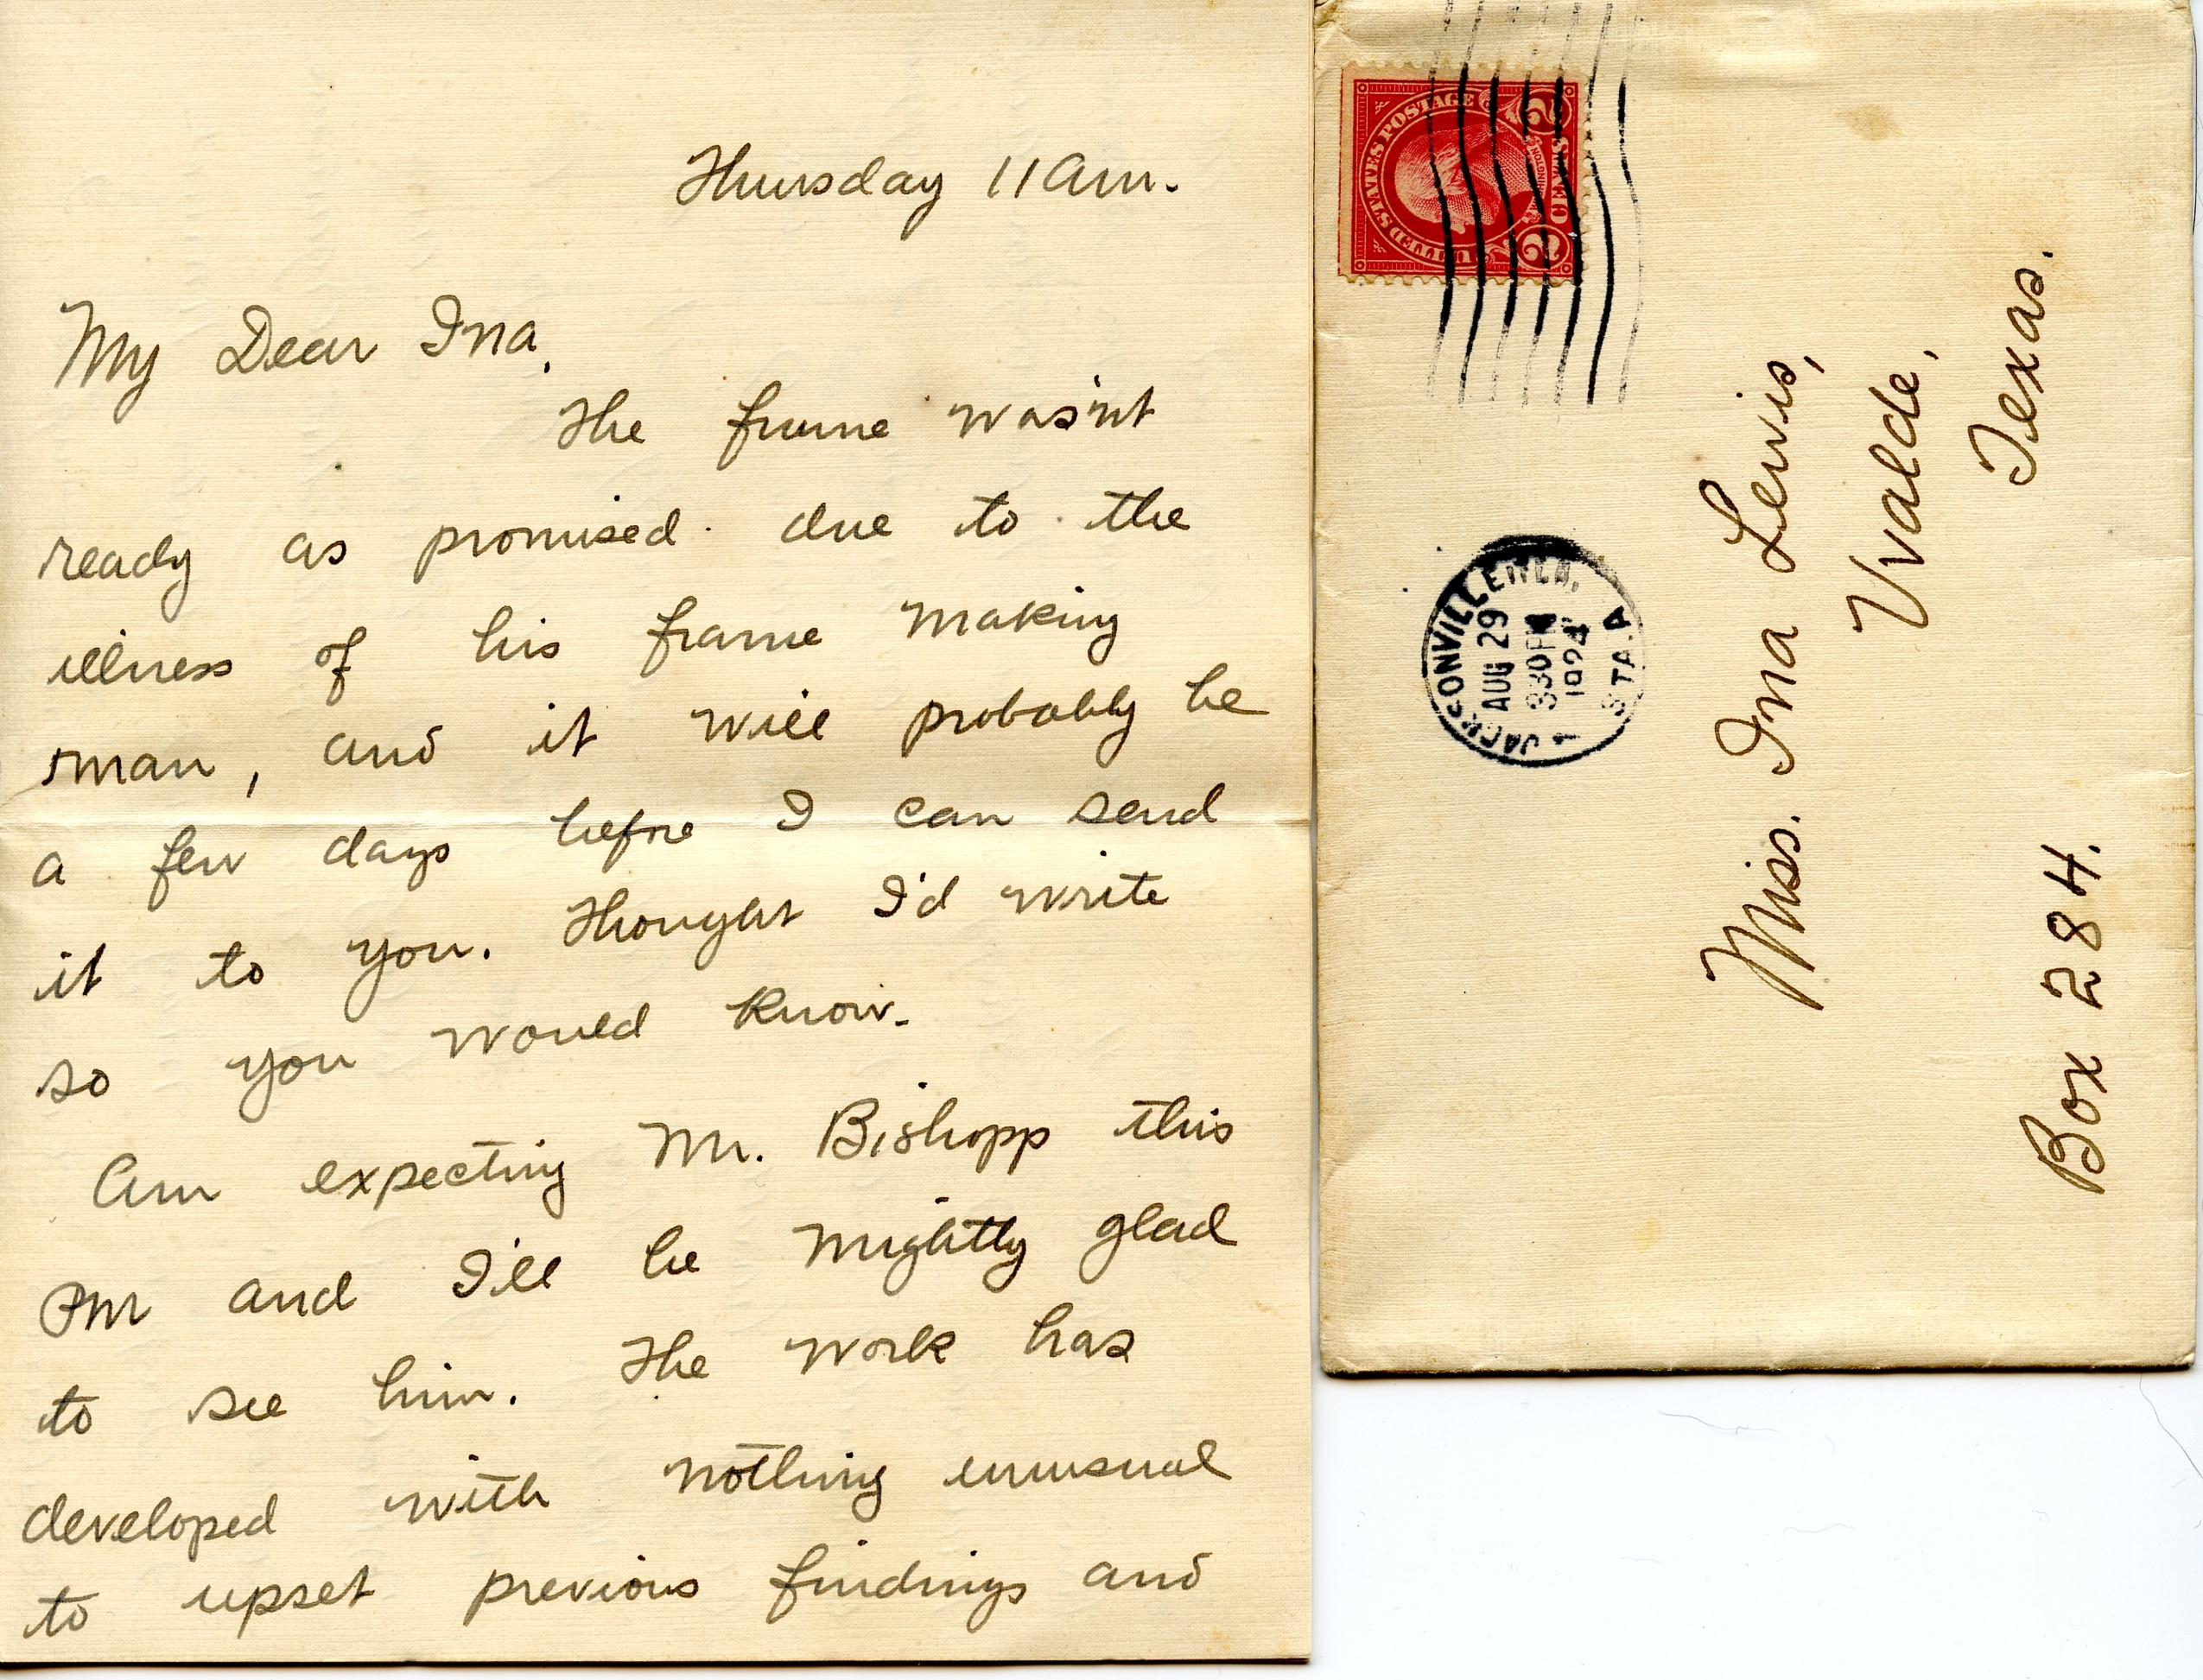 Thursday 11 am.
My Dear Ina,
The frame was'nt
ready as promised due to the
illness of his frame making
man, and it will probably be
a few days before I can send
it to you. Thought I'd write
so you would know.
Am expecting Mr. Bishopp this
PM and I'll be mightly glad
to see him. The work has
developed with nothing unusual
to upset previous findings and
UNITED STATES POSTAGE
2 CENTS 2
WASHINGTON
JACKSONVILLE FLA.
AUG 29
330 PM
1924
STA. A
1
Miss. Ina Lewis,
Uvalde,
Texas.
Box 284.